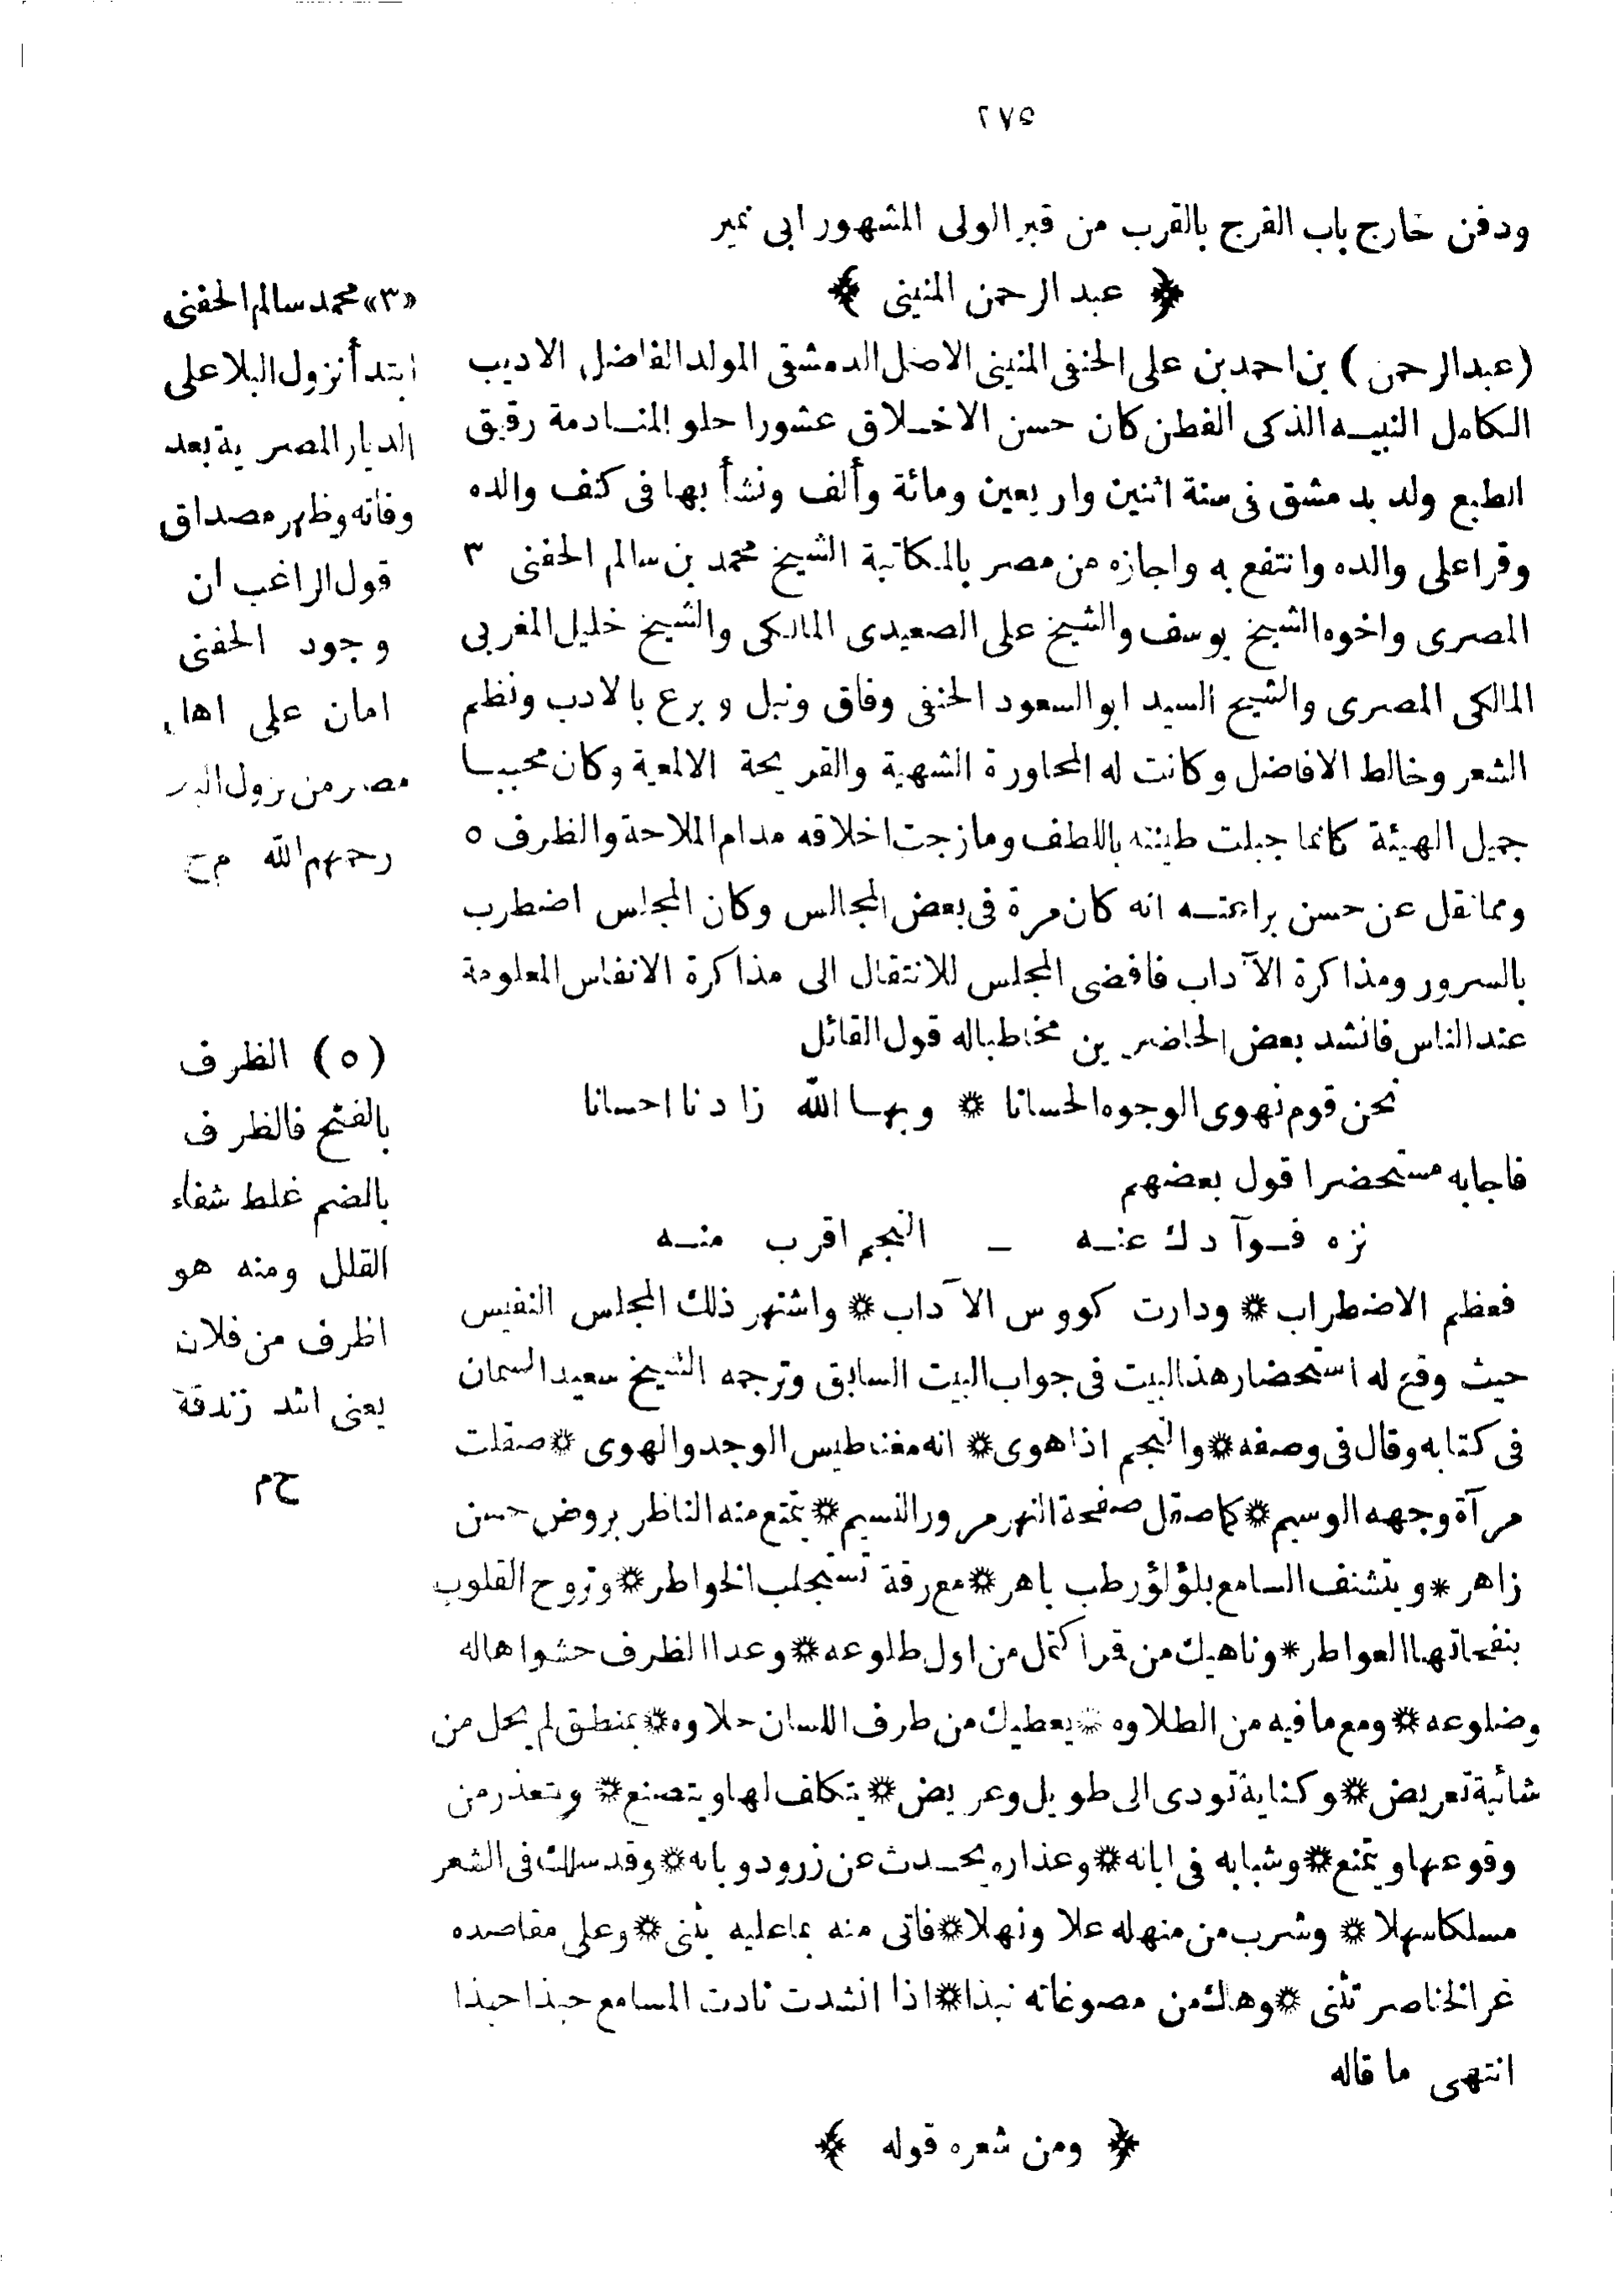 ٢٧٥
ودفن خارج باب الفرج بالقرب من قبر الولى المشهور ابى نمير
﴿ عبد الرحمن المنينى ﴾
(عبدالرحمن) بن احمد بن على الحنفى المنينى الاصل الدمشقى المولد الفاضل الاديب
الكامل النبيه الذكى الفطن كان حسن الاخلاق عشورا حلو المنادمة رقيق
الطبع ولد بدمشق فى سنة اثنين واربعين ومائة وألف ونشأ بها فى كنف والده
وقرا على والده وانتفع به واجازه من مصر بالمكاتبة الشيخ محمد بن سالم الحفنى ٣
المصرى واخوه الشيخ يوسف والشيخ على الصعيدى المالكى والشيخ خليل المغربى
المالكى المصرى والشيخ السيد ابو السعود الحنفى وفاق ونبل وبرع بالادب ونظم
الشعر وخالط الافاضل وكانت له المحاورة الشهية والقريحة الالمعية وكان محببا
جميل الهيئة كانما جبلت طينته باللطف ومازجت اخلاقه مدام الملاحة والظرف ٥
ومما نقل عن حسن براعته انه كان مرة فى بعض المجالس وكان المجلس اضطرب
بالسرور ومذاكرة الآداب فافضى المجلس للانتقال الى مذاكرة الانفاس المعلومة
عند الناس فانشد بعض الحاضرين مخاطبا له قول القائل
نحن قوم نهوى الوجوه الحسانا * وبها الله زادنا احسانا
فاجابه مستحضرا قول بعضهم
نزه فوآدك عنه _ النجم اقرب منه
فعظم الاضطراب * ودارت كووس الآداب * واشتهر ذلك المجلس النفيس
حيث وقع له استحضار هذا البيت فى جواب البيت السابق وترجمه الشيخ سعيد السمان
فى كتابه وقال فى وصفه * والنجم اذا هوى * انه مغناطيس الوجد والهوى * صقلت
مرآة وجهه الوسيم * كما صقل صفحة النهر مرور النسيم * يتمتع منه الناظر بروض حسن
زاهر * ويتشنف السامع بلؤلؤ رطب باهر * مع رقة تستجلب الخواطر * وتروح القلوب
بنفحاتها العواطر * وناهيك من قمر اكتمل من اول طلوعه * وغدا الظرف حشو اهاله
وضلوعه * ومع ما فيه من الطلاوه * يعطيك من طرف اللسان حلاوه * بمنطق لم يخل من
شائبة تعريض * وكناية تودى الى طويل وعريض * يتكلف لها ويتصنع * ويتعذر من
وقوعها ويتمنع * وشبابه فى ابانه * وعذاره يحدث عن زرود وبانه * وقد سلك فى الشعر
مسلكا سهلا * وشرب من منهله علا ونهلا * فاتى منه بما عليه يثنى * وعلى مقاصده
غر الخناصر تثنى * وهاك من مصوغاته نبذا * اذا انشدت نادت المسامع حبذا حبذا
انتهى ما قاله
﴿ ومن شعره قوله ﴾
«٣» محمد سالم الحفنى
ابتدأ نزول البلا على
الديار المصرية بعد
وفاته وظهر مصداق
قول الراغب ان
وجود الحفنى
امان على اهل
مصر من نزول
رحمهم الله م ح
(٥) الظرف
بالفتح فالظرف
بالضم غلط شفاء
الغلل ومنه هو
اظرف من فلان
يعنى اشد زندقة
ح م